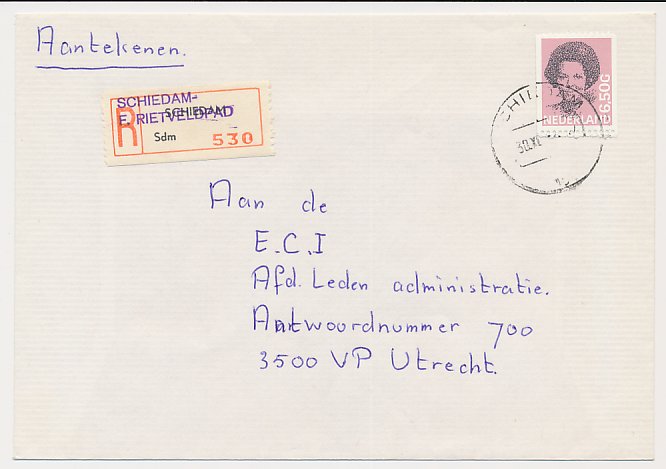 Aantekenen.
SCHIEDAM-
SCHIEDAM
E. RIETVELDPAD
R
Sdm
530
6.50G
NEDERLAND
30.XI
Aan de
E.C.I
Afd. Leden administratie.
Antwoordnummer 700
3500 VP Utrecht.